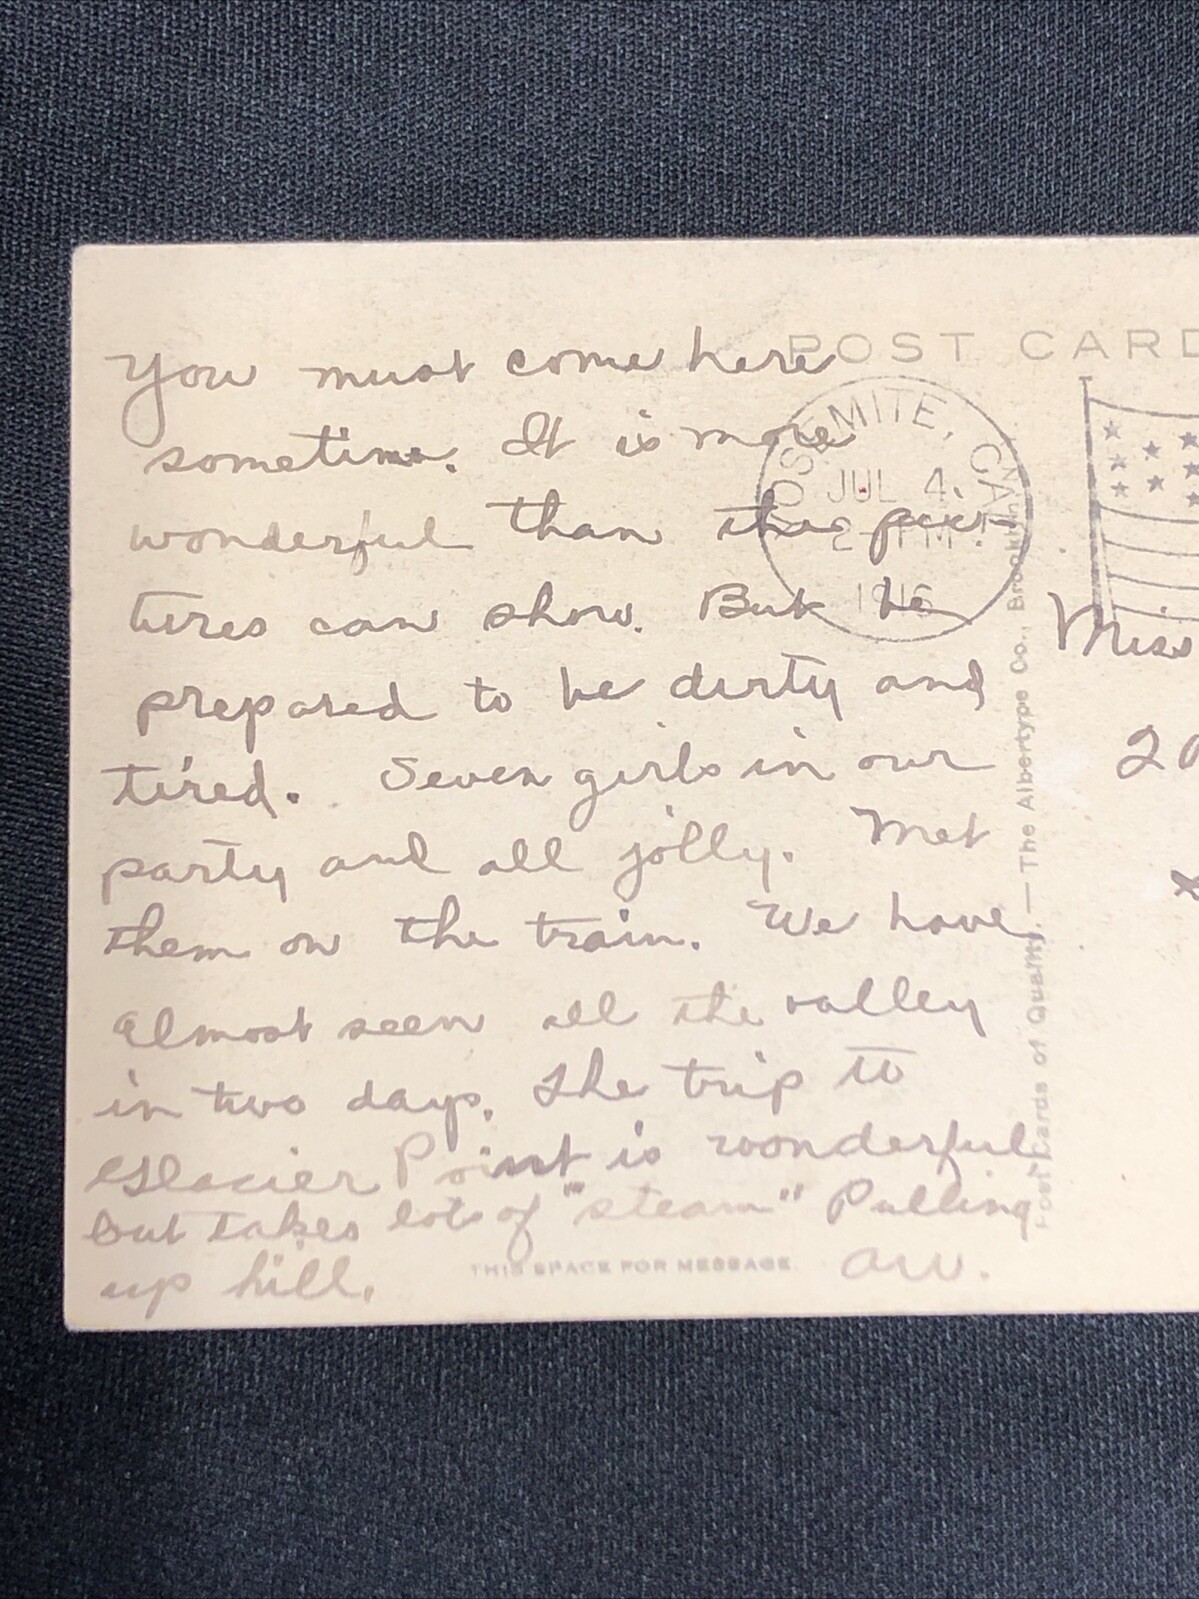 POST CARD
You must come here
sometime. It is more
wonderful than the pic-
tures can show. But be
prepared to be dirty and
tired. Seven girls in our
party and all jolly. Met
them on the train. We have
almost seen all the valley
in two days. The trip to
Glacier Point is wonderful
but takes lots of "steam" Pulling
up hill.
THIS SPACE FOR MESSAGE
OSEMITE, CA
JUL 4
PM
1916
Post Cards of Quality. — The Albertype Co., Brooklyn
Miss